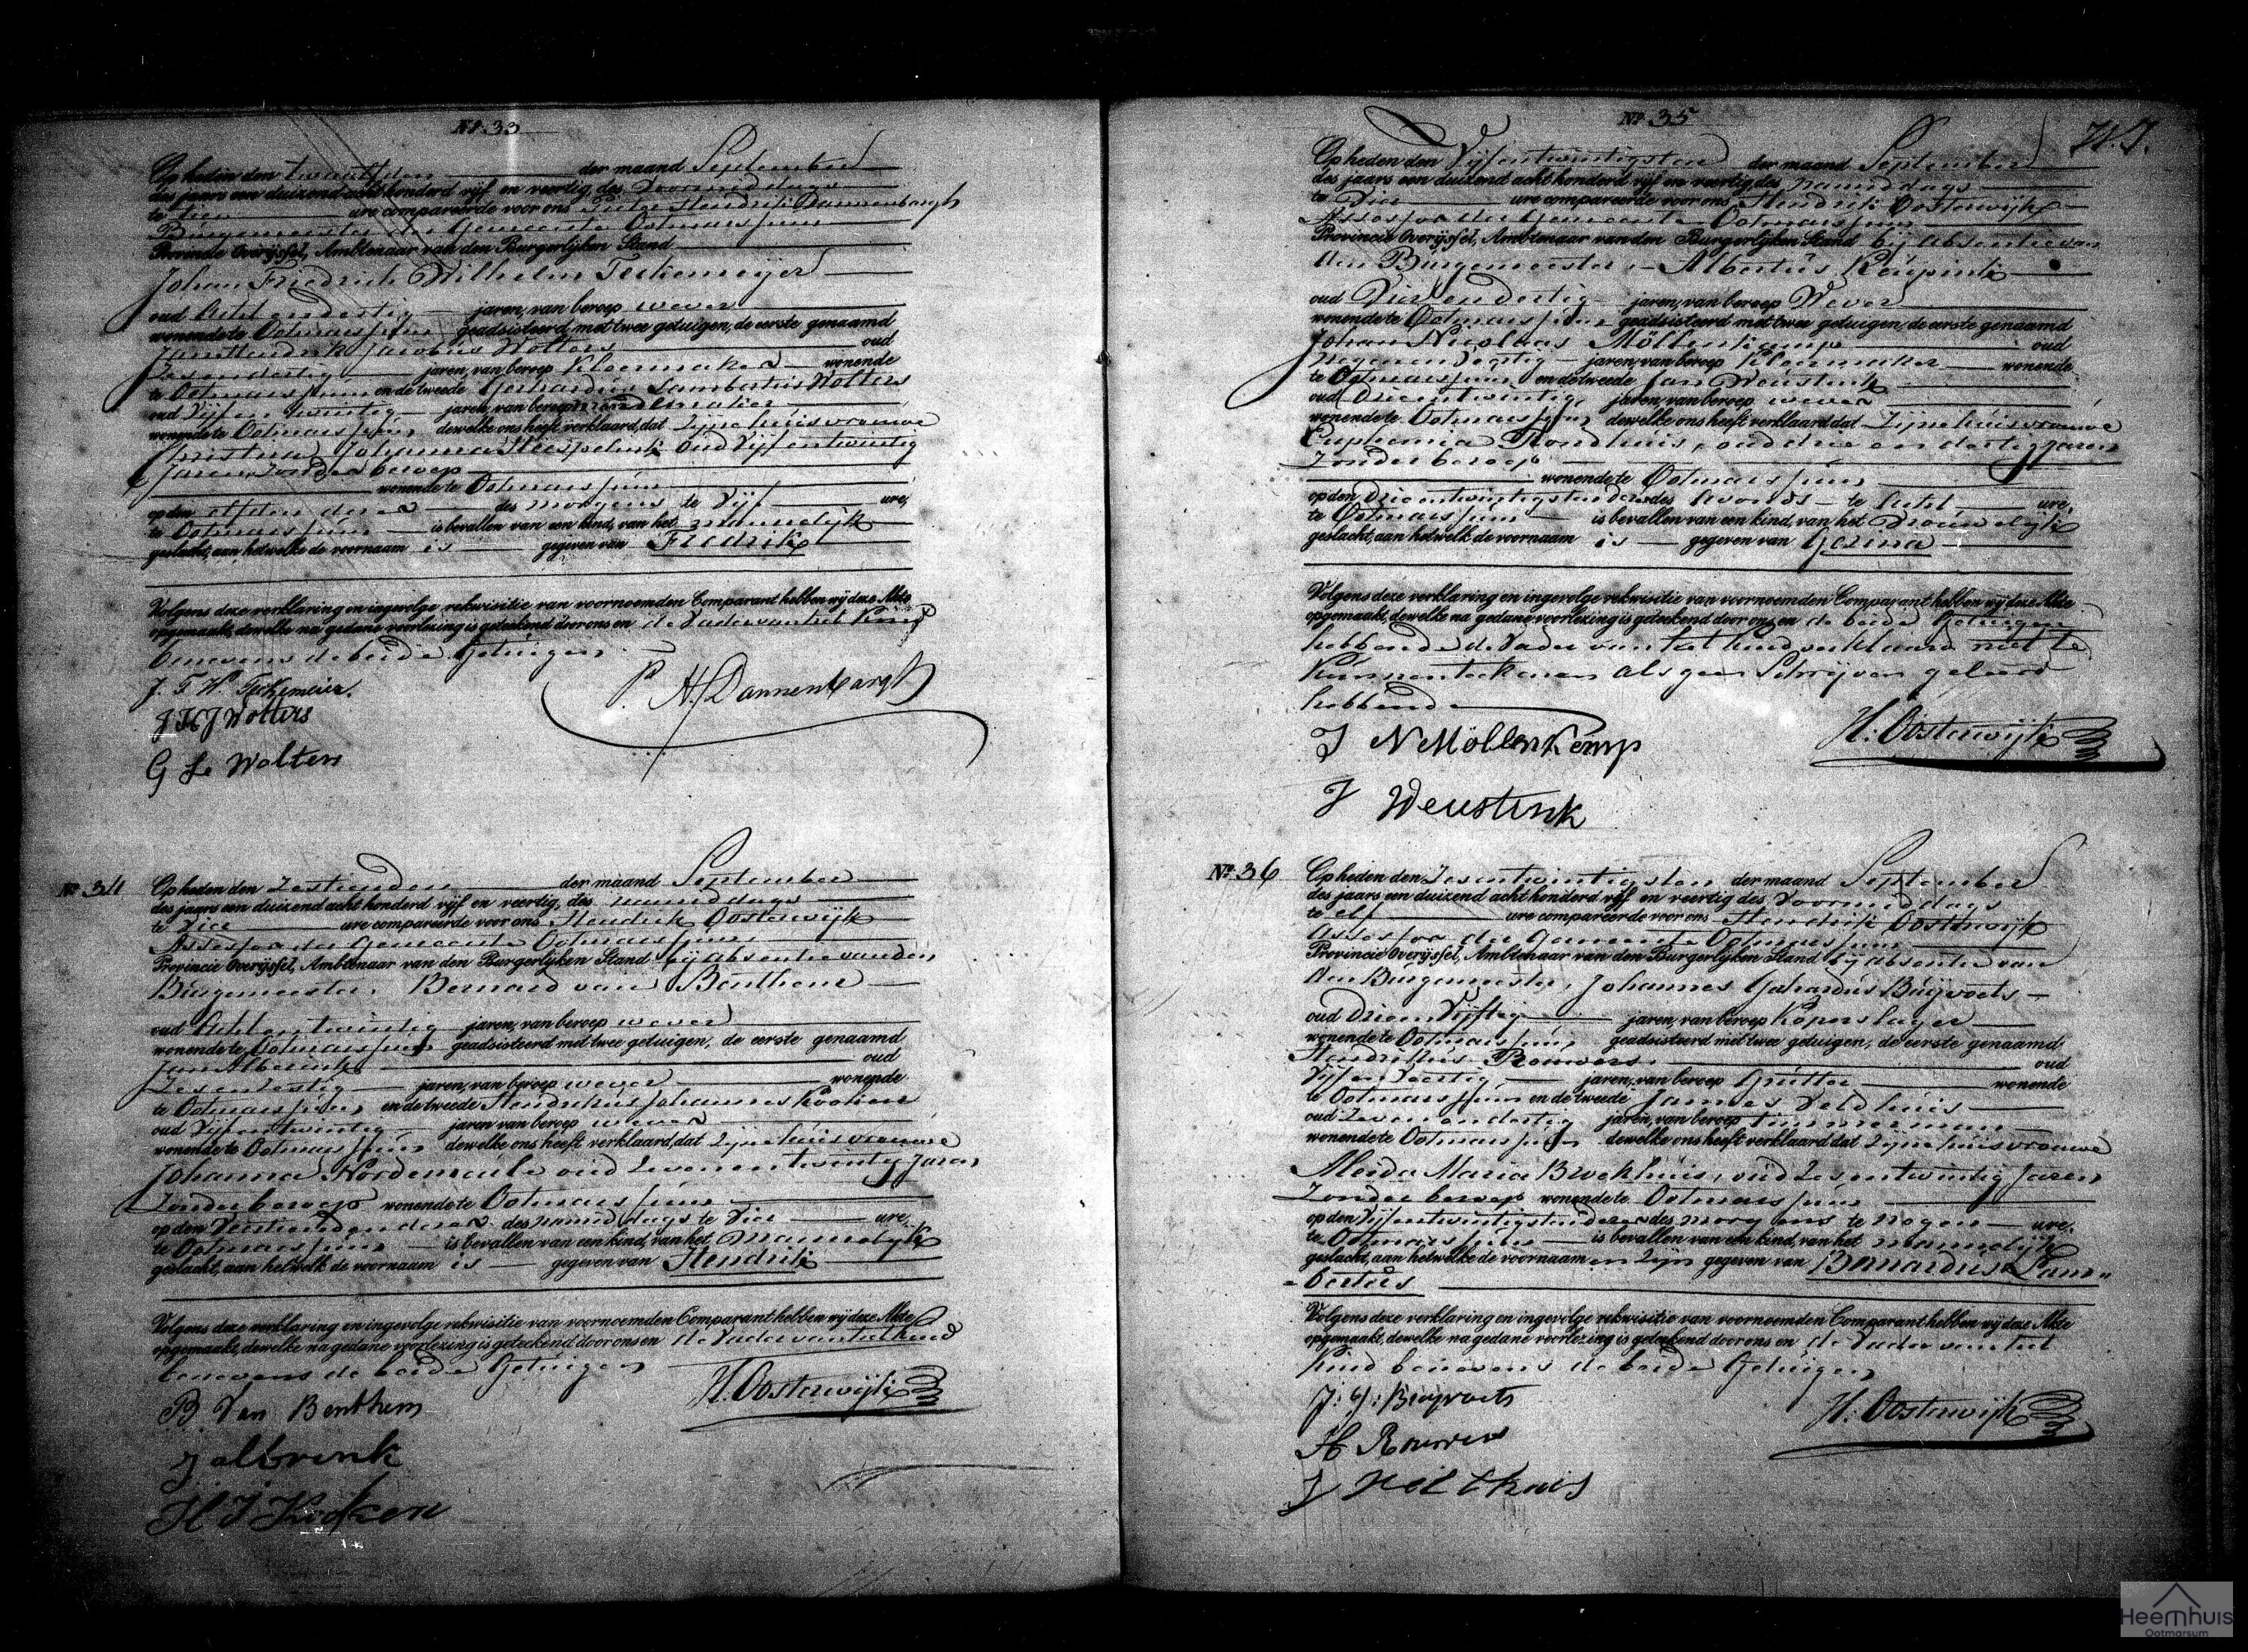 Nº 33
Op heden den twaalfden der maand September
des jaars een duizend acht honderd vijf en veertig, des Voormiddags
te tien ure compareerde voor ons Pieter Hendrik Dannenbargh
Burgemeester der Gemeente Ootmarssum
Provincie Overijssel, Ambtenaar van den Burgerlijken Stand
Johan Friedrich Wilhelm Teckemeijer
oud Acht en dertig jaren, van beroep wever
wonende te Ootmarssum geadsisteerd met twee getuigen, de eerste genaamd
Jan Hendrik Jacobus Wolters oud
Zes en dertig jaren, van beroep Kleermaker wonende
te Ootmarssum en de tweede Gerhardus Lambertus Wolters
oud Vijf en twintig jaren, van beroep
wonende te Ootmarssum dewelke ons heeft verklaard, dat Zijne huisvrouwe
Christina Johanna oud Vijf en twintig
Jaren, Zonder beroep
wonende te Ootmarssum
op den elfden dezer des morgens te Vijf ure,
te Ootmarssum is bevallen van een kind, van het mannelijk
geslacht, aan hetwelke de voornaam is gegeven van Fredrik
Volgens deze verklaring en ingevolge rekwisitie van voornoemden Comparant hebben wij deze Akte
opgemaakt, dewelke na gedane voorlezing is geteekend door ons en de Vader van het Kind
benevens de beide Getuigen
P. H. Dannenbargh
J. F. W. Teckemeier.
J H J Wolters
G L Wolters
Nº 34
Op heden den Zestienden der maand September
des jaars een duizend acht honderd vijf en veertig, des namiddags
te Vier ure compareerde voor ons Hendrik Oosterwijk
Assessor der Gemeente Ootmarssum
Provincie Overijssel, Ambtenaar van den Burgerlijken Stand bij absentie van den
Burgemeester, Bernard van Benthem
oud Acht en twintig jaren, van beroep wever
wonende te Ootmarssum geadsisteerd met twee getuigen, de eerste genaamd
Jan Alberink oud
Zes en dertig jaren, van beroep wever wonende
te Ootmarssum en de tweede Hendrikus Johannes Kooken
oud Vijf en twintig jaren van beroep wever
wonende te Ootmarssum dewelke ons heeft verklaard, dat Zijne huisvrouwe
Johanna Nordemeule oud Zeven en twintig Jaren,
Zonder beroep wonende te Ootmarssum
op den Veertienden dezer des namiddags te Vier ure,
te Ootmarssum is bevallen van een kind, van het Mannelijk
geslacht, aan hetwelk de voornaam is gegeven van Hendrik
Volgens deze verklaring en ingevolge rekwisitie van voornoemden Comparant hebben wij deze Akte
opgemaakt, dewelke na gedane voorlezing is geteekend door ons en de Vader van het Kind
benevens de beide Getuigen
H. Oosterwijk
B Van Benthem
J albrink
H J Kooken
Nº 35
Op heden den Vijfentwintigsten der maand September
des jaars een duizend acht honderd vijf en veertig, des namiddags
te Vier ure compareerde voor ons Hendrik Oosterwijk
Assessor der Gemeente Ootmarssum
Provincie Overijssel, Ambtenaar van den Burgerlijken Stand bij absentie van
den Burgemeester, Albertus Reupink
oud Vier en dertig jaren, van beroep Wever
wonende te Ootmarssum geadsisteerd met twee getuigen, de eerste genaamd
Johan Nicolaas Möllenkamp oud
Negen en Veertig jaren, van beroep Kleermaker wonende
te Ootmarssum en de tweede Jan Weustink
oud Drieentwintig jaren, van beroep wever
wonende te Ootmarssum dewelke ons heeft verklaard dat Zijne huisvrouwe
Euphemia Nordhuis, oud drie en dertig Jaren
Zonder beroep
wonende te Ootmarssum
op den Drieentwintigsten dezer des Avonds te Acht ure,
te Ootmarssum is bevallen van een kind, van het Vrouwelijk
geslacht, aan hetwelk de voornaam is gegeven van Gezina
Volgens deze verklaring en ingevolge rekwisitie van voornoemden Comparant hebben wij deze Akte
opgemaakt, dewelke na gedane voorlezing is geteekend door ons en de beide Getuigen
hebbende de Vader van het Kind verklaard niet te
Kunnen teekenen als geen Schrijven geleerd
hebbende
H. Oosterwijk
J N Möllenkemp
J Weustink
Nº 36
Op heden den Zesentwintigsten der maand September
des jaars een duizend acht honderd vijf en veertig des Voormiddags
te elf ure compareerde voor ons Hendrik Oosterwijk
Assessor der Gemeente Ootmarssum
Provincie Overijssel, Ambtenaar van den Burgerlijken Stand bij absentie van
den Burgemeester, Johannes Gerhardus Buijvoets
oud Drie en Vijftig jaren, van beroep Koperslager
wonende te Ootmarssum geadsisteerd met twee getuigen, de eerste genaamd
Hendrikus Rouwers oud
Vijf en Veertig jaren, van beroep wonende
te Ootmarssum en de tweede Jannes Veldhuis
oud Zeven en dertig jaren, van beroep timmerman
wonende te Ootmarssum dewelke ons heeft verklaard dat Zijne huisvrouwe
Aleida Maria Broekhuis, oud Zes en twintig Jaren
Zonder beroep wonende te Ootmarssum
op den Vijfentwintigsten dezer des morgens te negen ure,
te Ootmarssum is bevallen van een kind, van het mannelijk
geslacht, aan hetwelke de voornaamen Zijn gegeven van Bernardus Lam-
bertus
Volgens deze verklaring en ingevolge rekwisitie van voornoemden Comparant hebben wij deze Akte
opgemaakt, dewelke na gedane voorlezing is geteekend door ons en de Vader van het
Kind benevens de beide Getuigen
H. Oosterwijk
J: G: Buijvoets
H Rouwers
J Veldthuis
Heemhuis
Ootmarsum